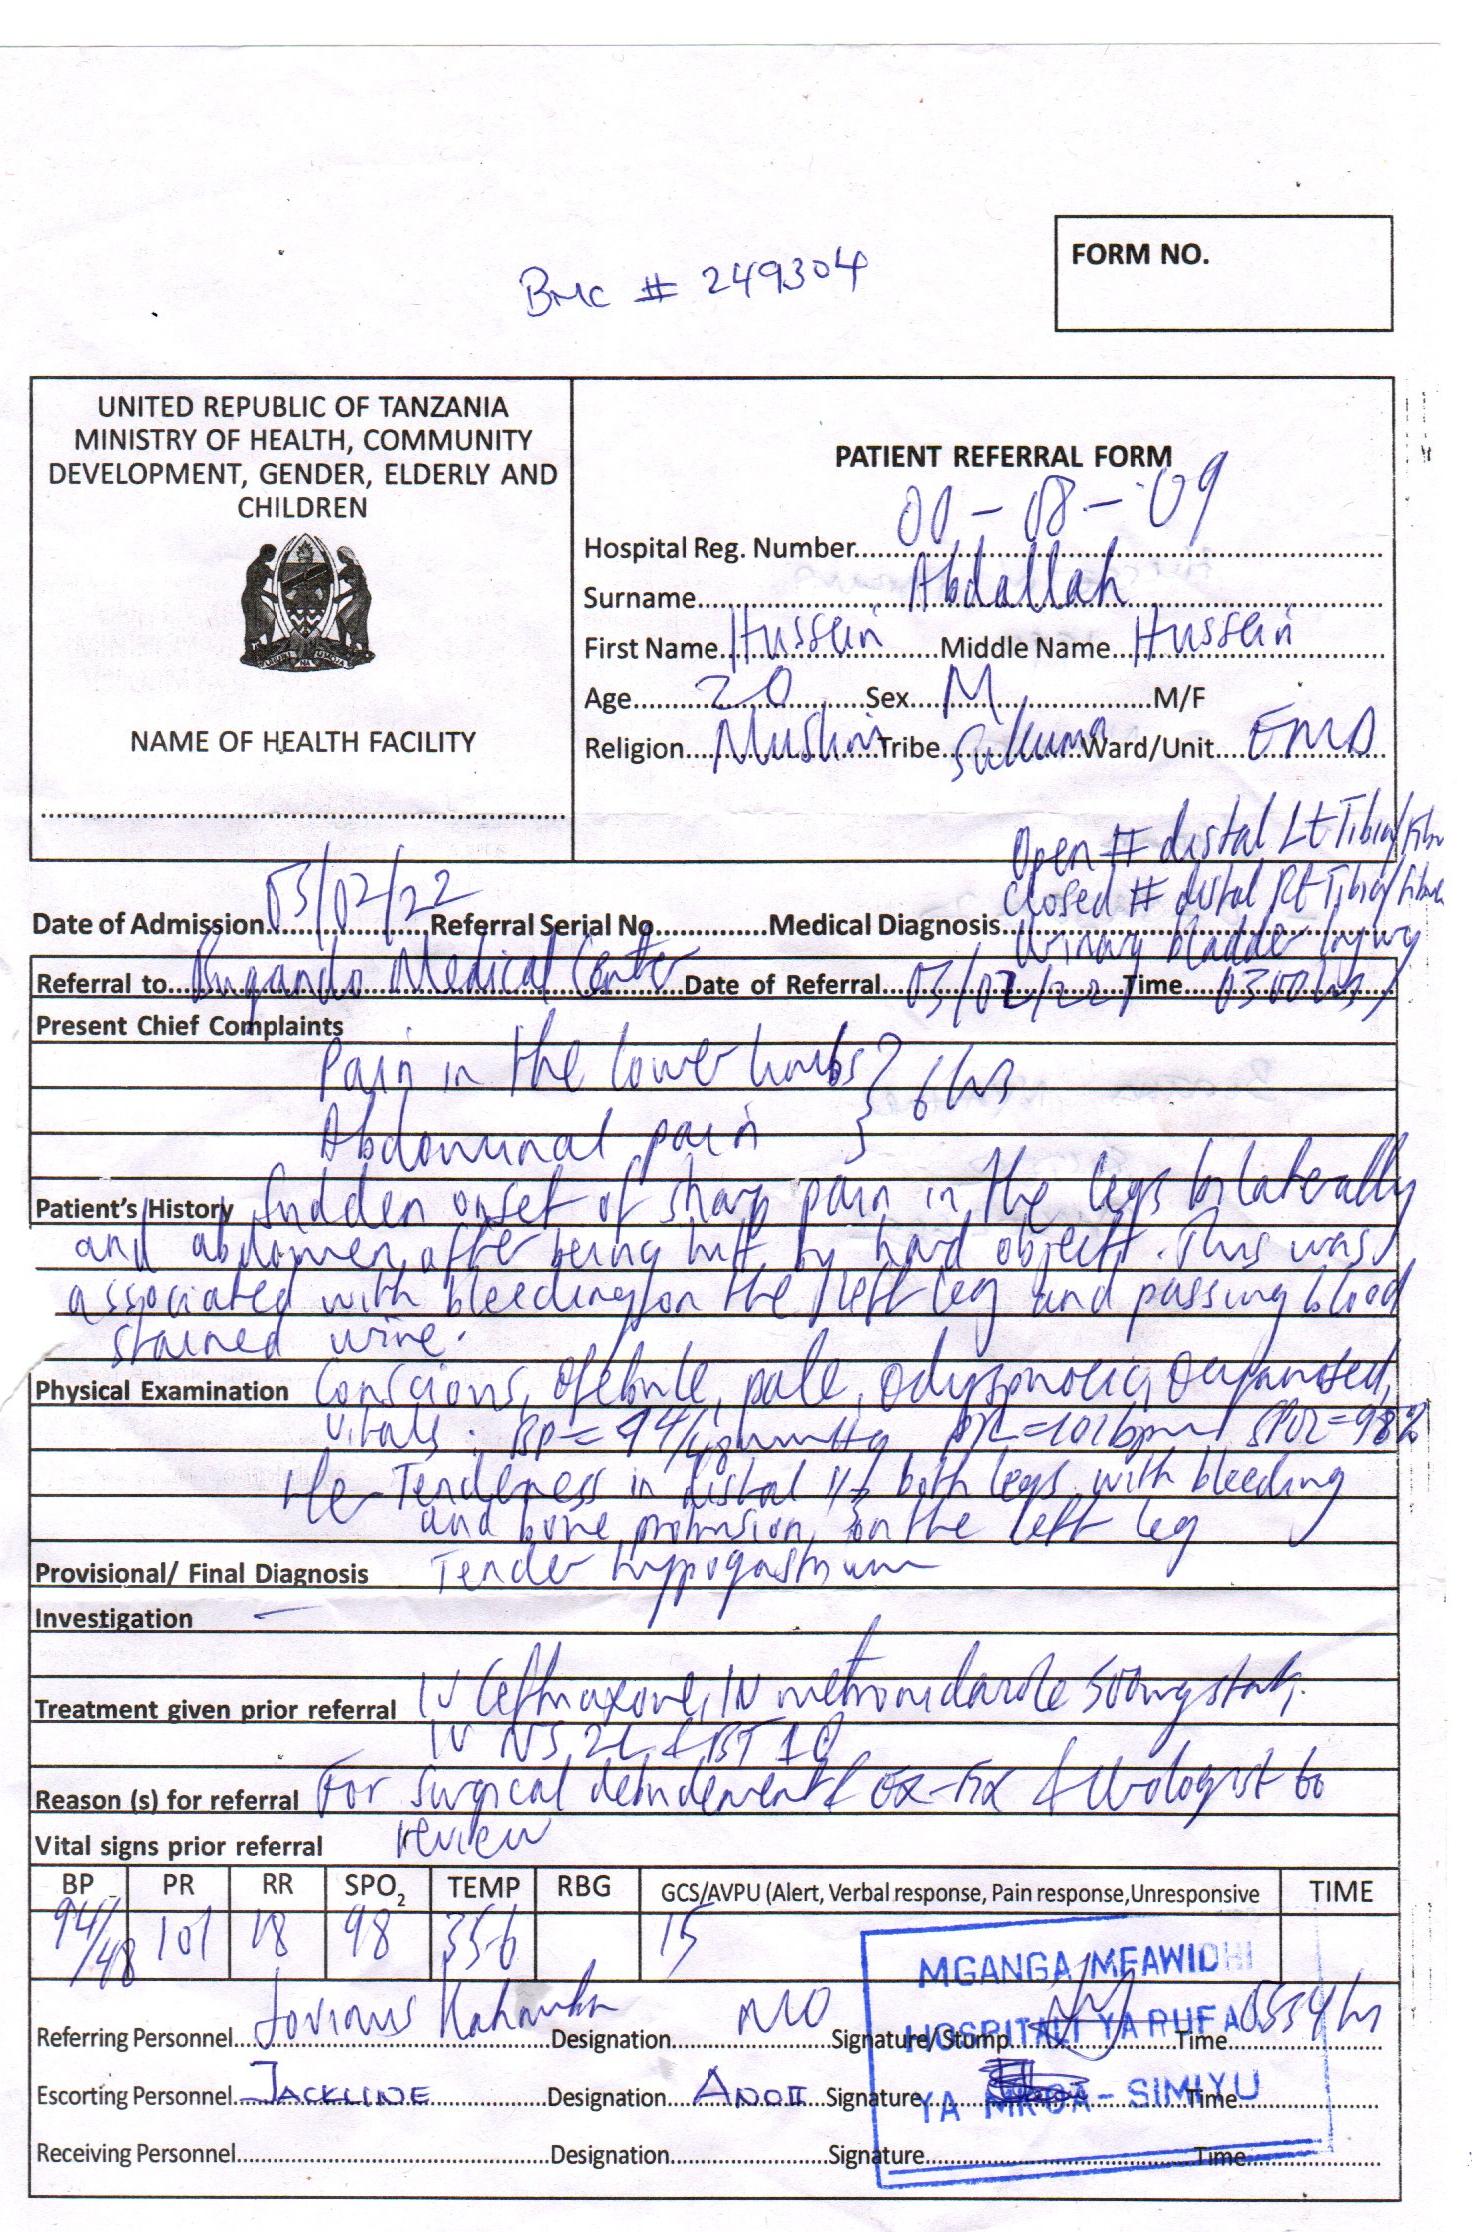 BMC # 249304
FORM NO.
UNITED REPUBLIC OF TANZANIA
MINISTRY OF HEALTH, COMMUNITY
DEVELOPMENT, GENDER, ELDERLY AND
CHILDREN
NAME OF HEALTH FACILITY
PATIENT REFERRAL FORM
Hospital Reg. Number 00-08-09
Surname Abdallah
First Name Hussein Middle Name Hussein
Age 20 Sex M M/F
Religion Muslim Tribe Sukuma Ward/Unit EMD
Open # distal Lt Tibia/Fibu
Closed # distal Rt Tibia/fibula
Date of Admission 03/02/22 Referral Serial No. Medical Diagnosis Urinary bladder Injury
Referral to Bugando Medical Center Date of Referral 03/02/22 Time 0300hrs
Present Chief Complaints
Pain in the lower limbs } 6hrs
Abdominal pain
Patient's History Sudden onset of sharp pain in the legs bilaterally
and abdomen after being hit by hard object. This was
associated with bleeding on the left leg and passing blood
stained urine.
Physical Examination Conscious, afebrile, pale,
Vitals: BP = 94/48mmHg, PR = 101bpm SPO2 = 98%
Tenderness in distal 1/3 both legs with bleeding
and bone protrusion on the left leg
Provisional/ Final Diagnosis Tender hypogastrium
Investigation —
Treatment given prior referral IV Ceftriaxone, IV metronidazole 500mg stat,
IV NS 2L & BT
Reason (s) for referral For surgical debridement & Ex-Fix & Urologist to
Vital signs prior referral review
BP PR RR SPO2 TEMP RBG GCS/AVPU (Alert, Verbal response, Pain response,Unresponsive TIME
94/48 101 18 98 35.6 15
MGANGA MFAWIDHI
HOSPITALI YA RUFAA
YA MKOA - SIMIYU
Referring Personnel Jovinus Designation MO Signature/Stomp Time 0534hrs
Escorting Personnel JACKLINE Designation ANOII Signature Time
Receiving Personnel Designation Signature Time